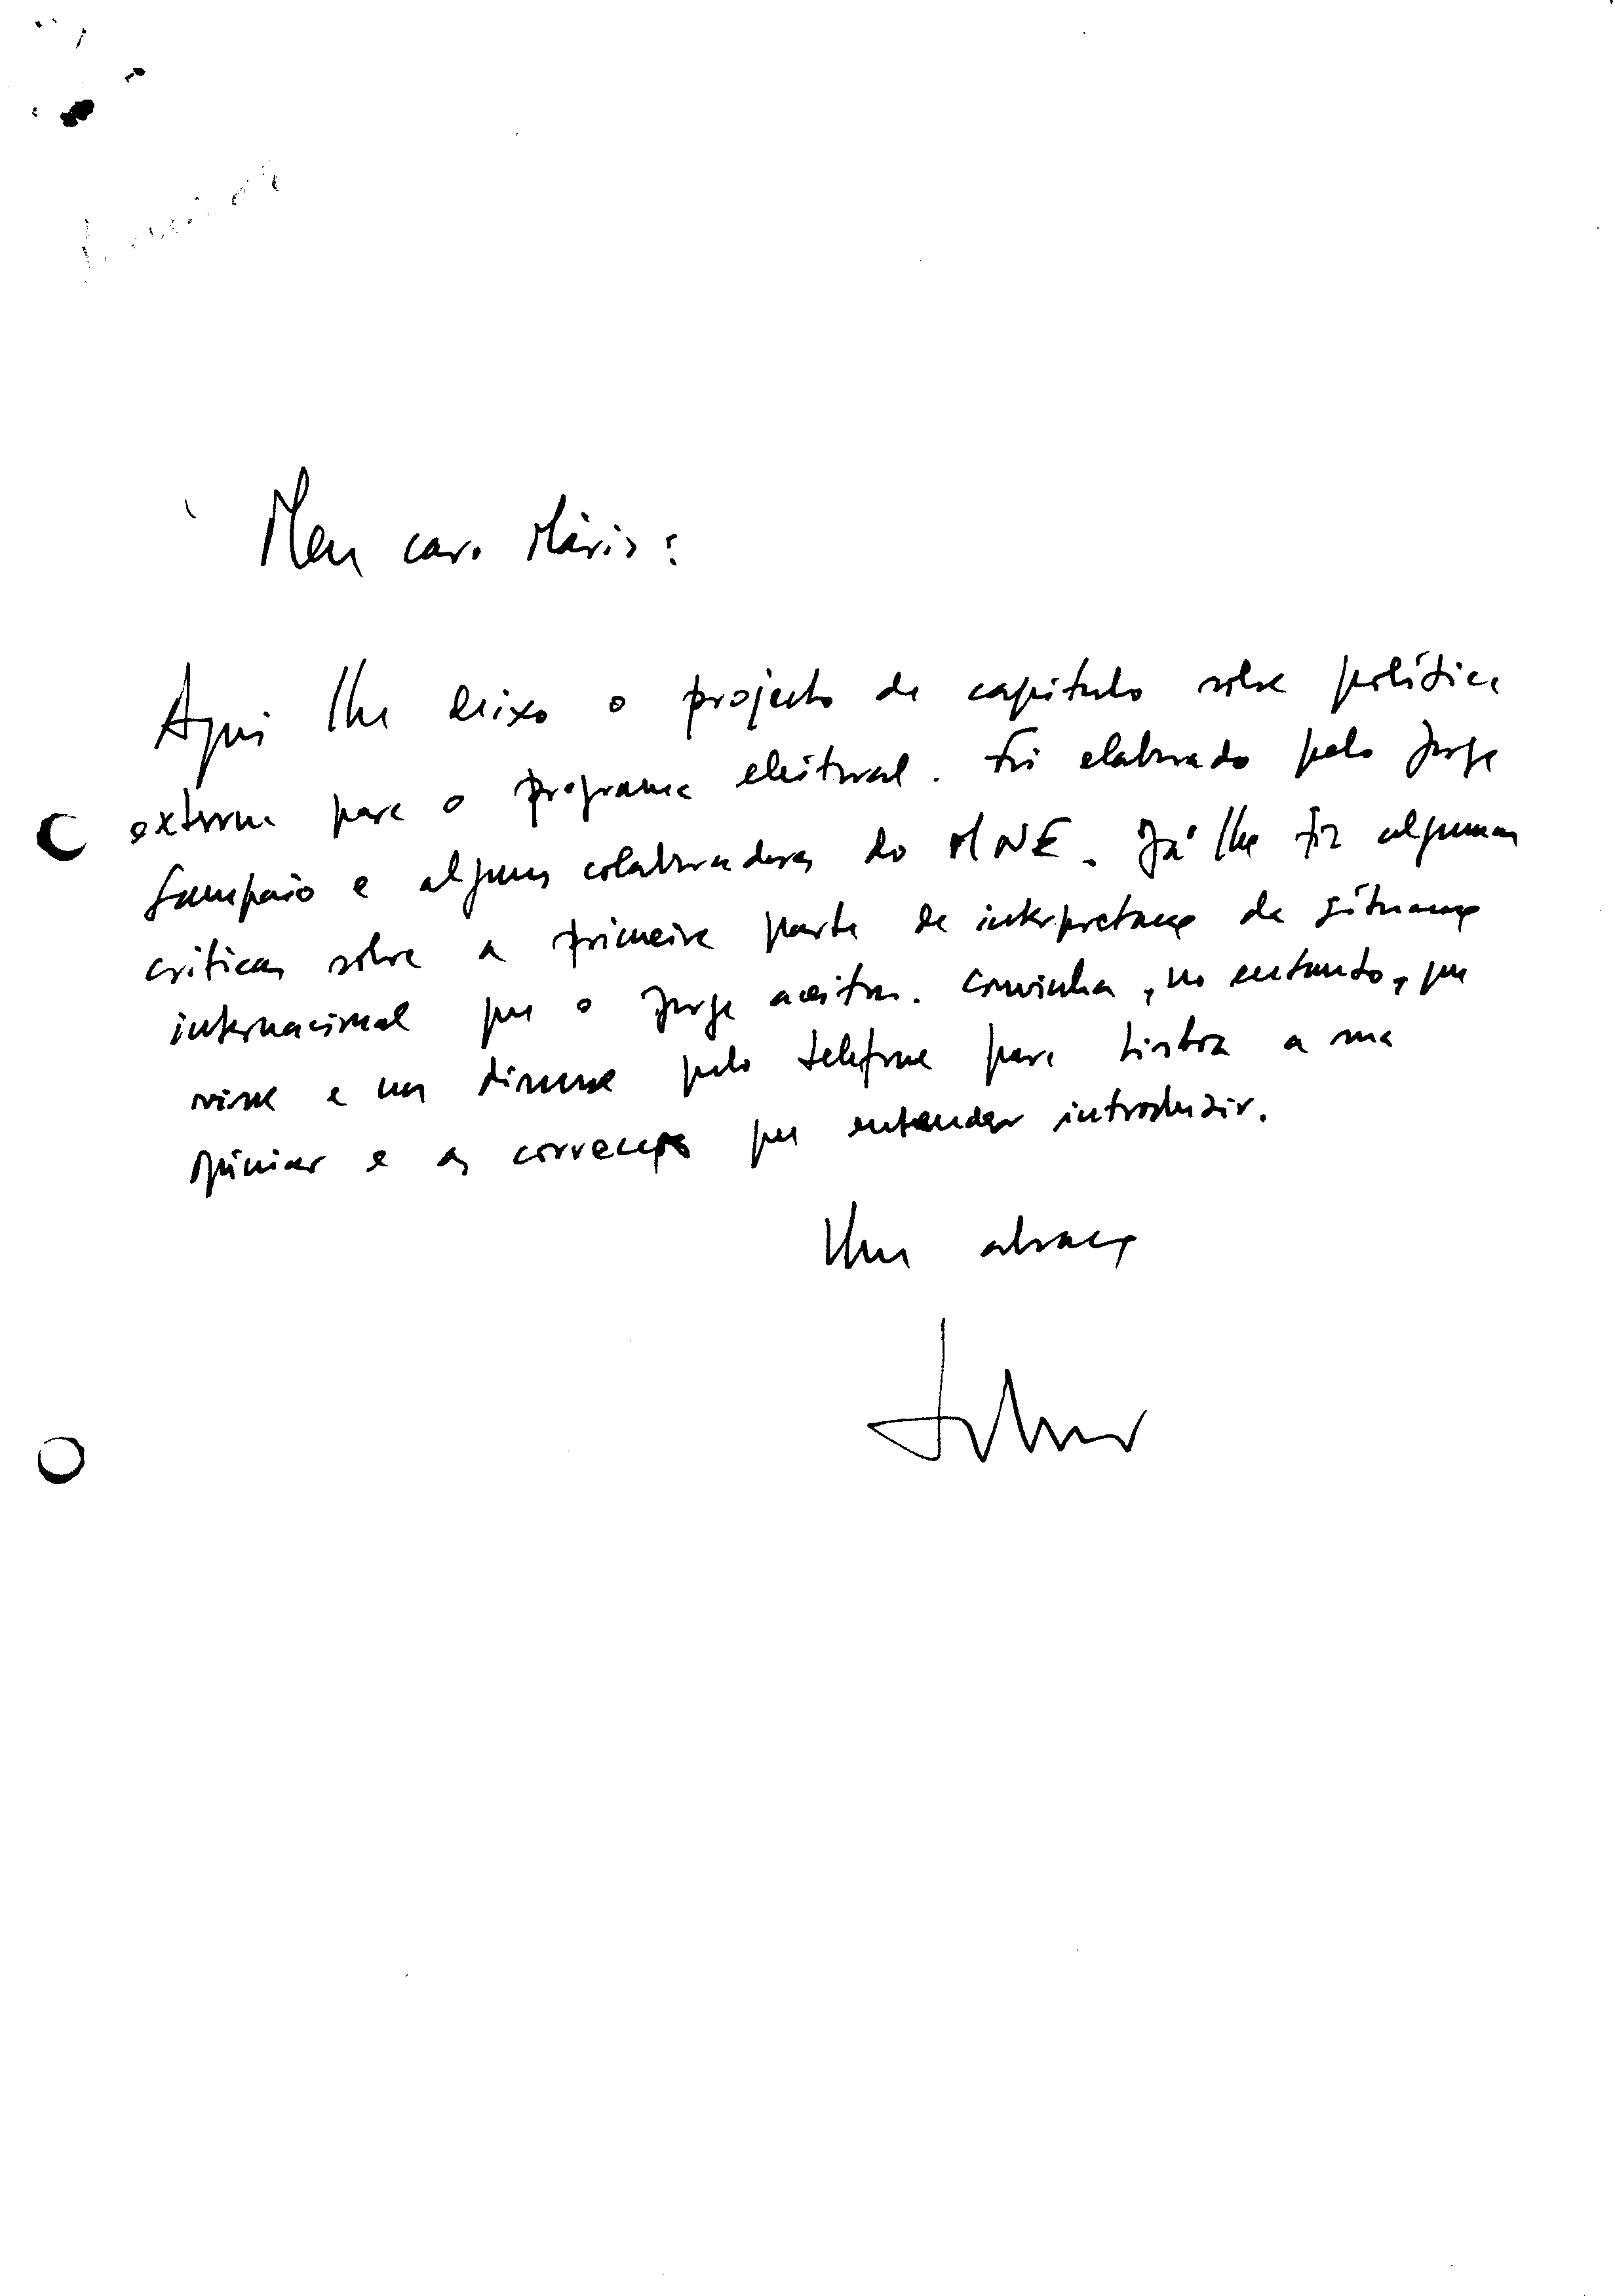 Meu caro Mário:
Aqui lhe deixo o projecto de capítulo sobre política
externa para o programa eleitoral. Foi elaborado pelo Jorge
Sampaio e alguns colaboradores do MNE. Já lhe fiz algumas
críticas sobre a primeira parte de interpretação da situação
internacional que o Jorge aceitou. Convinha, no entanto, que
visse e nos dissesse pelo telefone para Lisboa a sua
opinião e as correcções que entender introduzir.
Um abraço